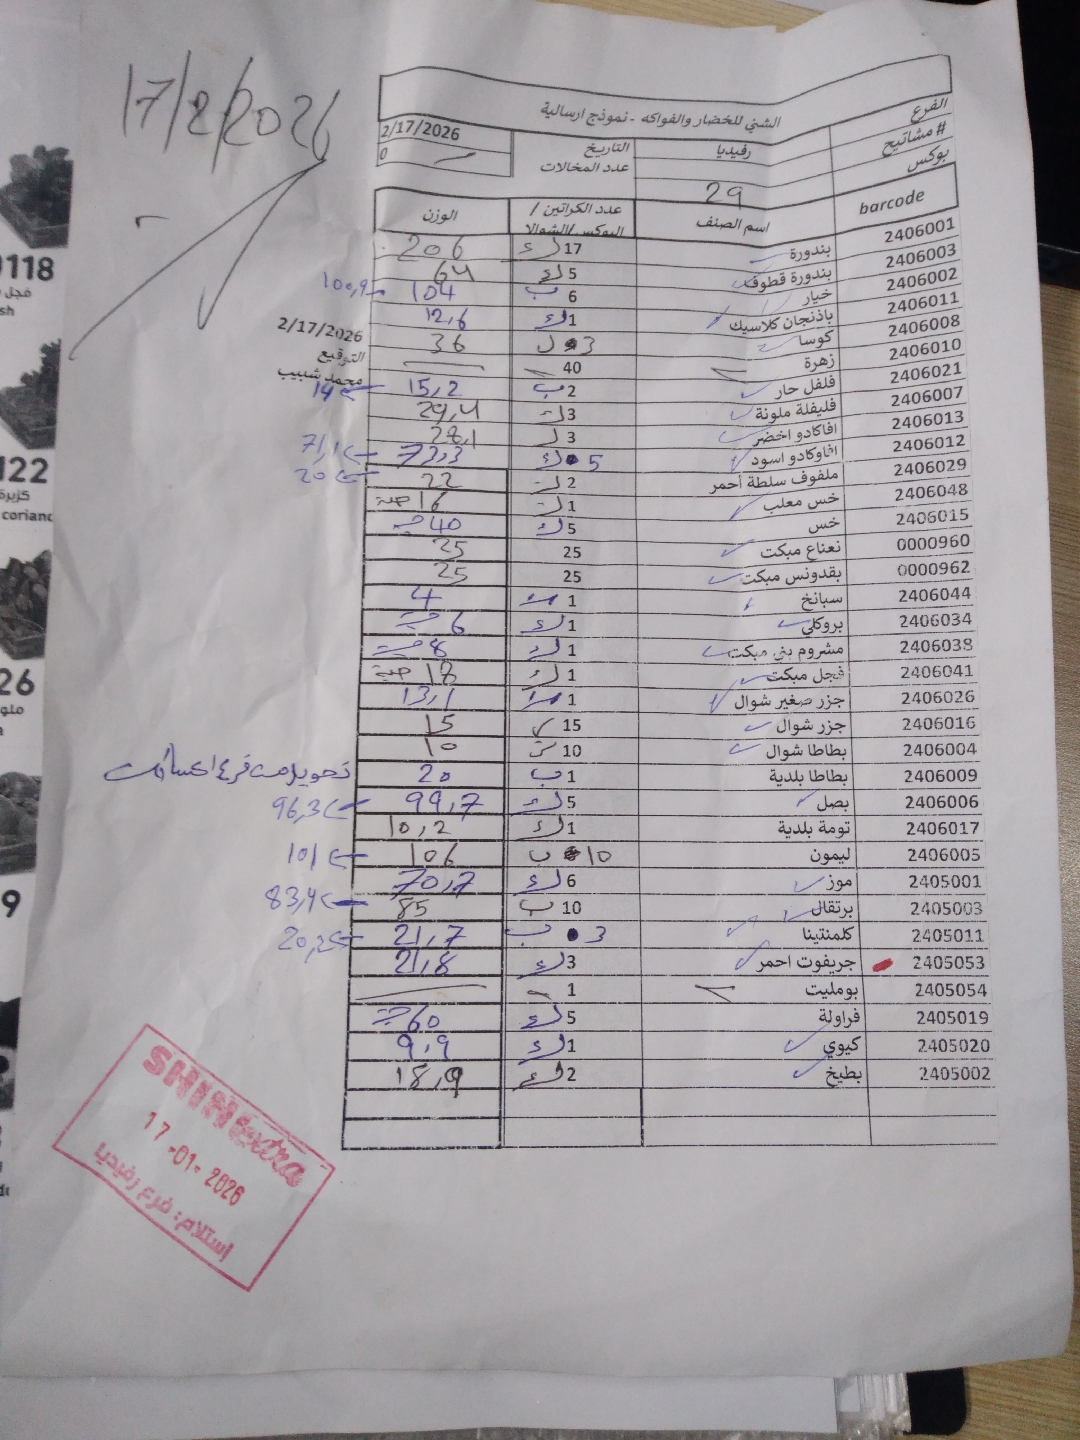 17/2/2026
الشني للخضار والفواكه - نموذج ارسالية
الفرع رفيديا التاريخ 2/17/2026
# مشاتيح عدد المخالات 0
بوكس 29
barcode اسم الصنف عدد الكراتين / البوكس/الشوالا الوزن
2406001 بندورة 17 ك 206
2406003 بندورة قطوف 5 ك 64
2406002 خيار 6 ب 104 100,9
2406011 باذنجان كلاسيك 1 ك 12,6
2406008 كوسا 3 ك 36
2406010 زهرة 40
2406021 فلفل حار 2 ب 15,2 14
2406007 فليفلة ملونة 3 ك 29,4
2406013 افاكادو اخضر 3 ك 28,1
2406012 افاوكادو اسود 5 ك 73,3 71,1
2406029 ملفوف سلطة أحمر 2 ك 22 20
2406048 خس معلب 1 ك 16 حبة
2406015 خس 5 ك 40 حبة
0000960 نعناع مبكت 25 25
0000962 بقدونس مبكت 25 25
2406044 سبانخ 1 4
2406034 بروكلي 1 ك 6 حبة
2406038 مشروم بني مبكت 1 ك 8 حبة
2406041 فجل مبكت 1 ك 18 حبة
2406026 جزر صغير شوال 1 13,1
2406016 جزر شوال 15 15
2406004 بطاطا شوال 10 10
2406009 بطاطا بلدية 1 ب 20 تحويل من فرع
2406006 بصل 5 ك 99,7 96,3
2406017 تومة بلدية 1 ك 10,2
2406005 ليمون 10 ب 106 101
2405001 موز 6 ك 70,7
2405003 برتقال 10 ب 85 83,4
2405011 كلمنتينا 3 ب 21,7 20,2
2405053 جريفوت احمر 3 ك 21,8
2405054 بومليت 1
2405019 فراولة 5 ك 60 حبة
2405020 كيوي 1 ك 9,9
2405002 بطيخ 2 ك 18,9
2/17/2026
التوقيع
محمد شبيب
SHINI extra
17-01-2026
إستلام: فرع رفيديا
0118
فجل
sh
122
كزبرة
corianc
26
ملو
9